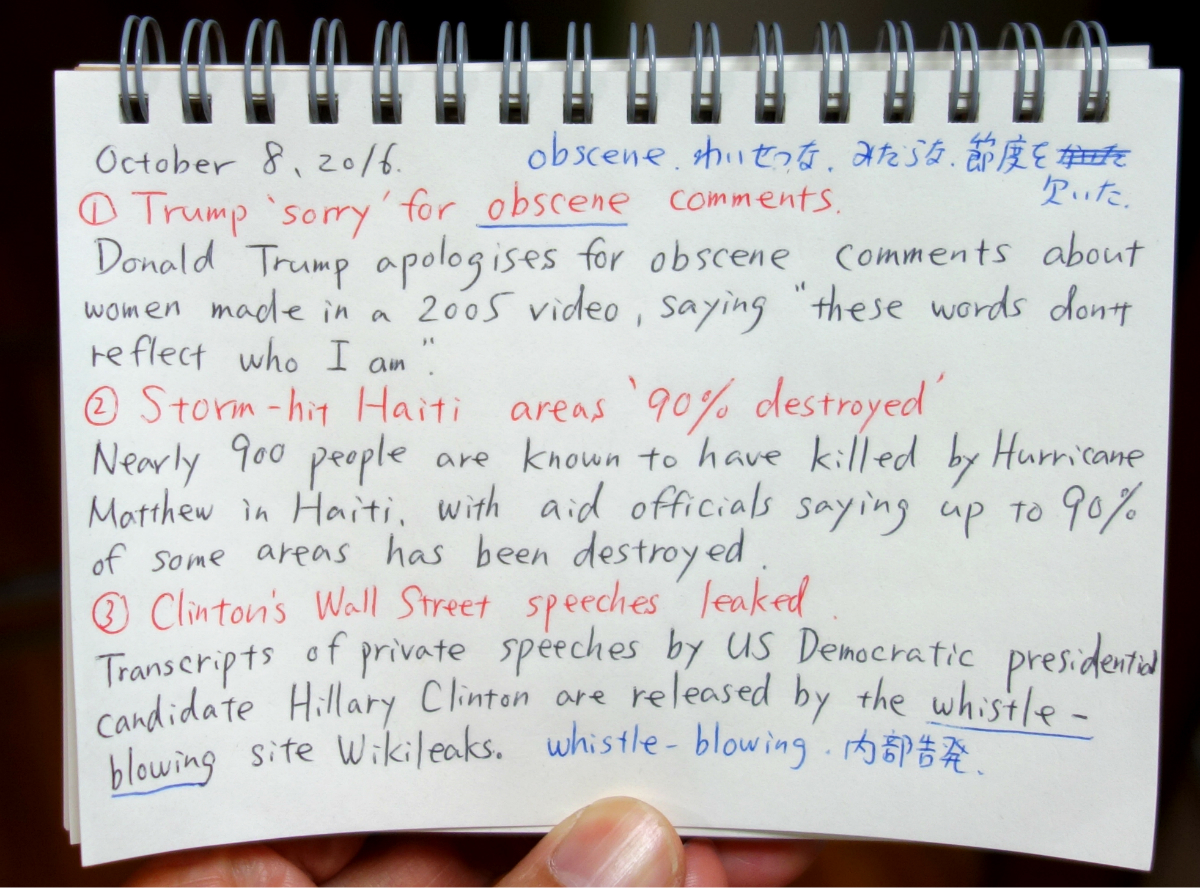 October 8, 2016.
obscene. わいせつな. みだらな. 節度を
欠いた.
① Trump 'sorry' for obscene comments.
Donald Trump apologises for obscene comments about
women made in a 2005 video, saying "these words don't
reflect who I am".
② Storm-hit Haiti areas '90% destroyed'
Nearly 900 people are known to have killed by Hurricane
Matthew in Haiti, with aid officials saying up to 90%
of some areas has been destroyed.
③ Clinton's Wall Street speeches leaked.
Transcripts of private speeches by US Democratic presidential
candidate Hillary Clinton are released by the whistle-
blowing site Wikileaks. whistle-blowing. 内部告発.